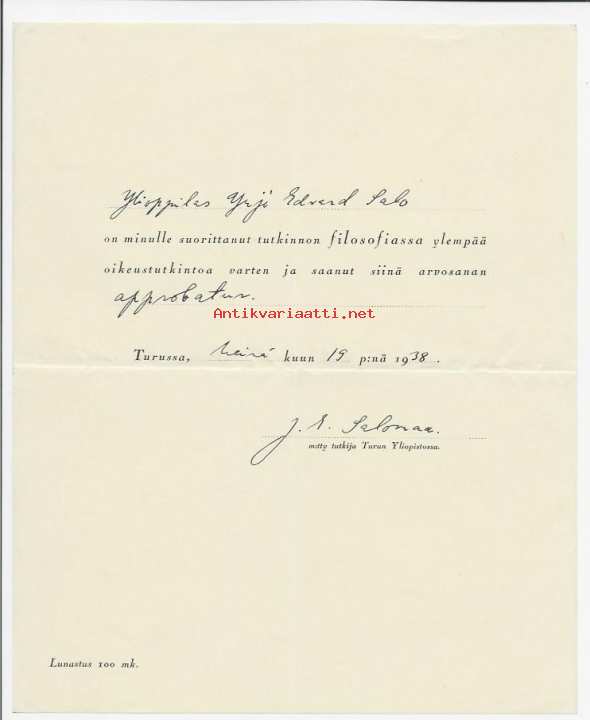 Ylioppilas Yrjö Edvard Salo
on minulle suorittanut tutkinnon filosofiassa ylempää
oikeustutkintoa varten ja saanut siinä arvosanan
approbatur.
Antikvariaatti.net
Turussa, heinä kuun 19 p:nä 1938.
J. E. Salomaa.
mtty tutkija Turun Yliopistossa.
Lunastus 100 mk.